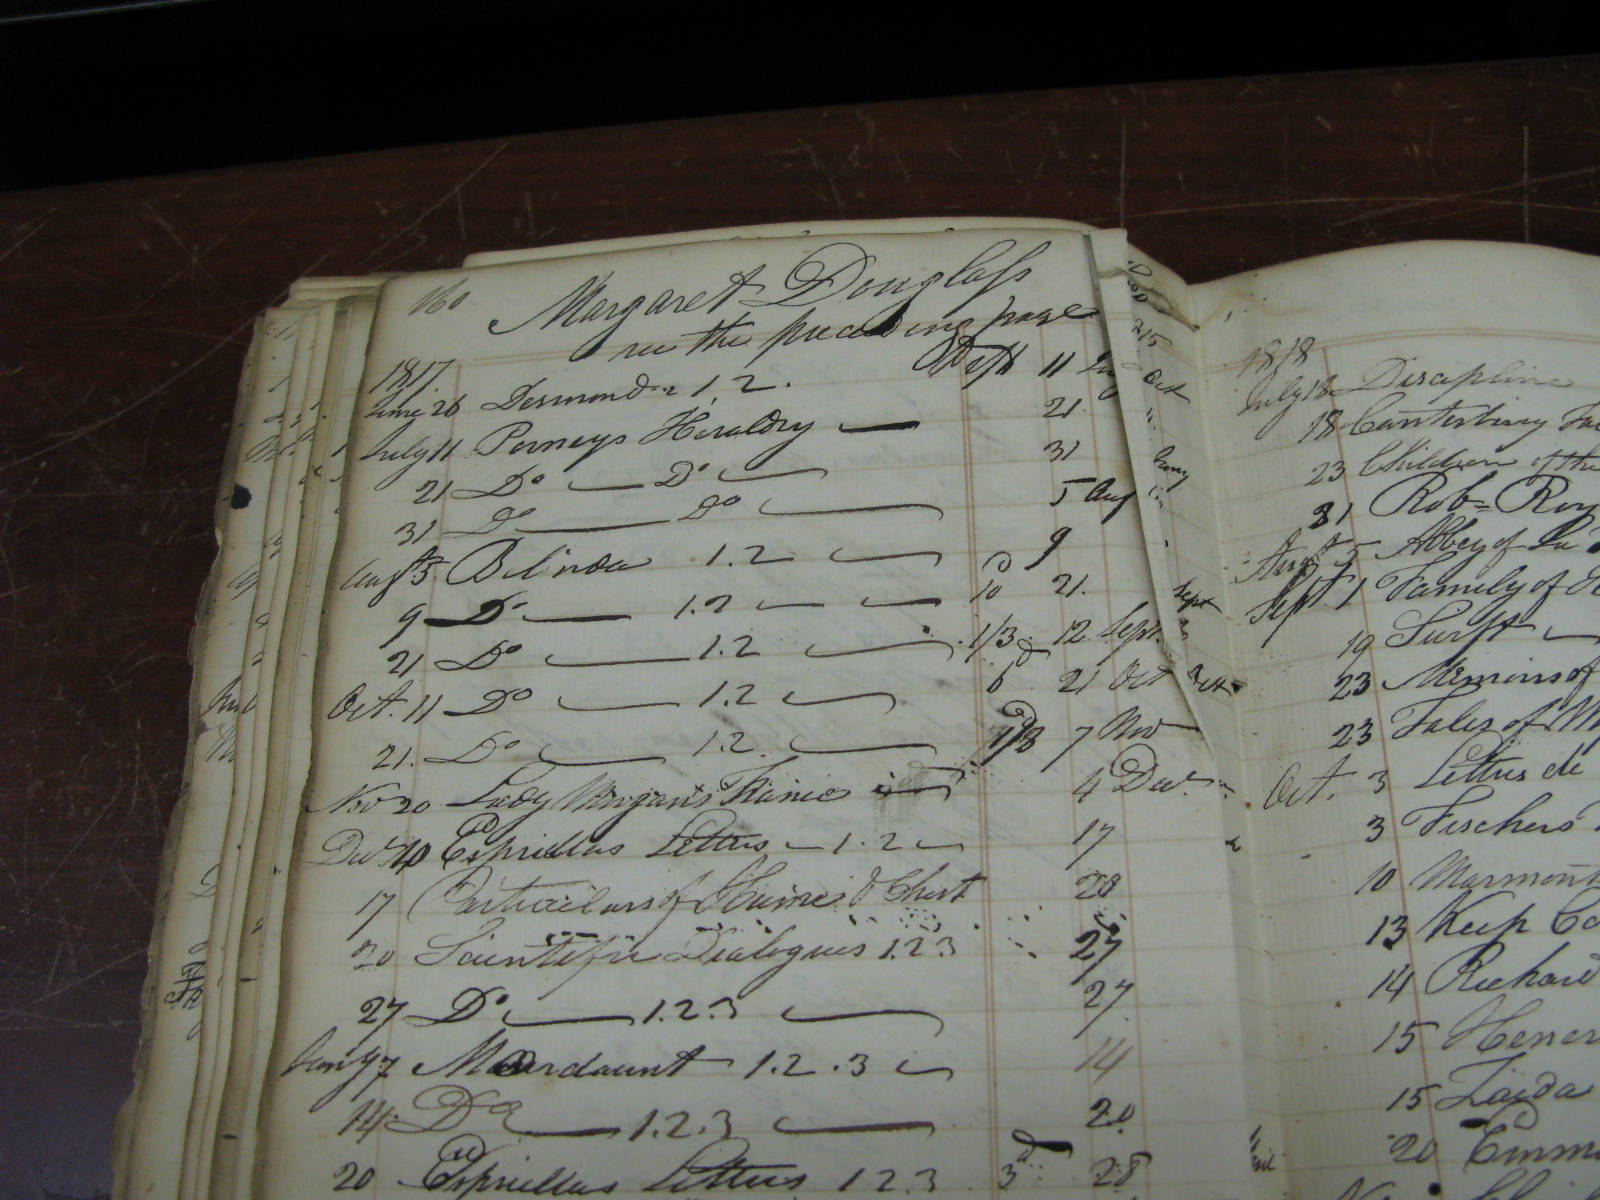 160 Margaret Douglass
see the preceeding page
1817.
June 26 Desmond 1, 2. 11
July 11 Porneys Heraldry 21
21 Do Do 31
31 Do Do 5 Aug
Augst 5 Belinda 1.2 9
9 Do 1.2 10 21.
21 Do 1.2 1/3 12 Sept.
Oct. 11 Do 1.2 6d 21 Oct
21. Do 1.2. 1/3 7 Nov
Nov 20 Lady Morgan's France 4 Decr.
Decr 10 Espriellas Letters 1.2 17
17 Particulars of 20
20 Scientific Dialogues 1.2.3 27
27 Do 1.2.3 27
Jany 7 Mordaunt 1.2.3 14
14 Do 1.2.3 20
20 Espriellas Letters 1 2 3 3d 28
215
Oct
Sept
Oct
1818
July 18 Discipline
18 Canterbury
23 Children of the
31 Rob Roy
Augst 5 Abbey of
Sept. 1 Family of
19 Swift
23 Memoirs of
23 Tales of
Oct. 3 Letters de
3 Fischers
10 Marmont
13 Keep
14 Richard
15
15 Zaida
20 Emm